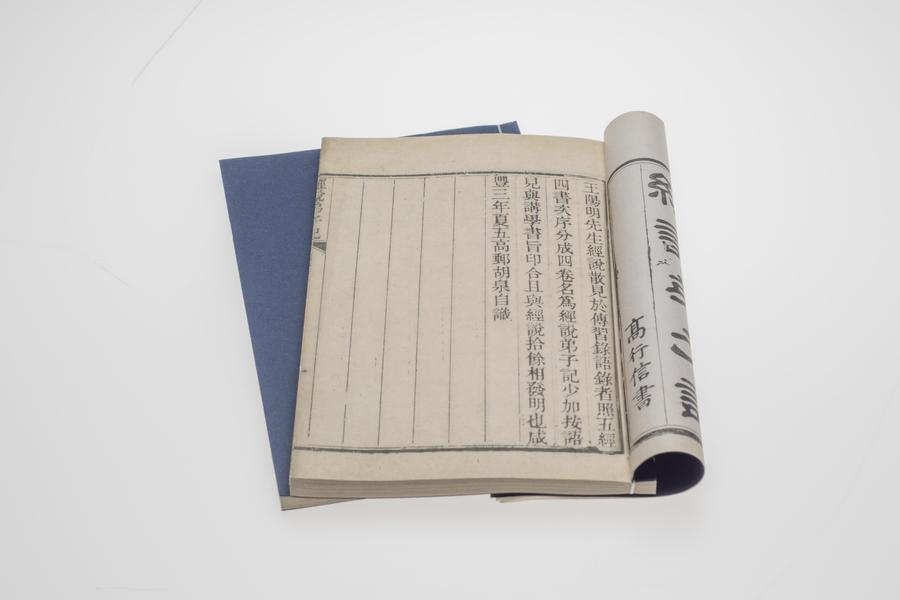 經說弟子記
高行信書
王陽明先生經說散見於傳習錄語錄者照五經
四書次序分成四卷名爲經說弟子記少加按語
兒與講學書旨印合且與經說拾餘相發明也咸
豐三年夏五高郵胡泉自識
經說弟子記